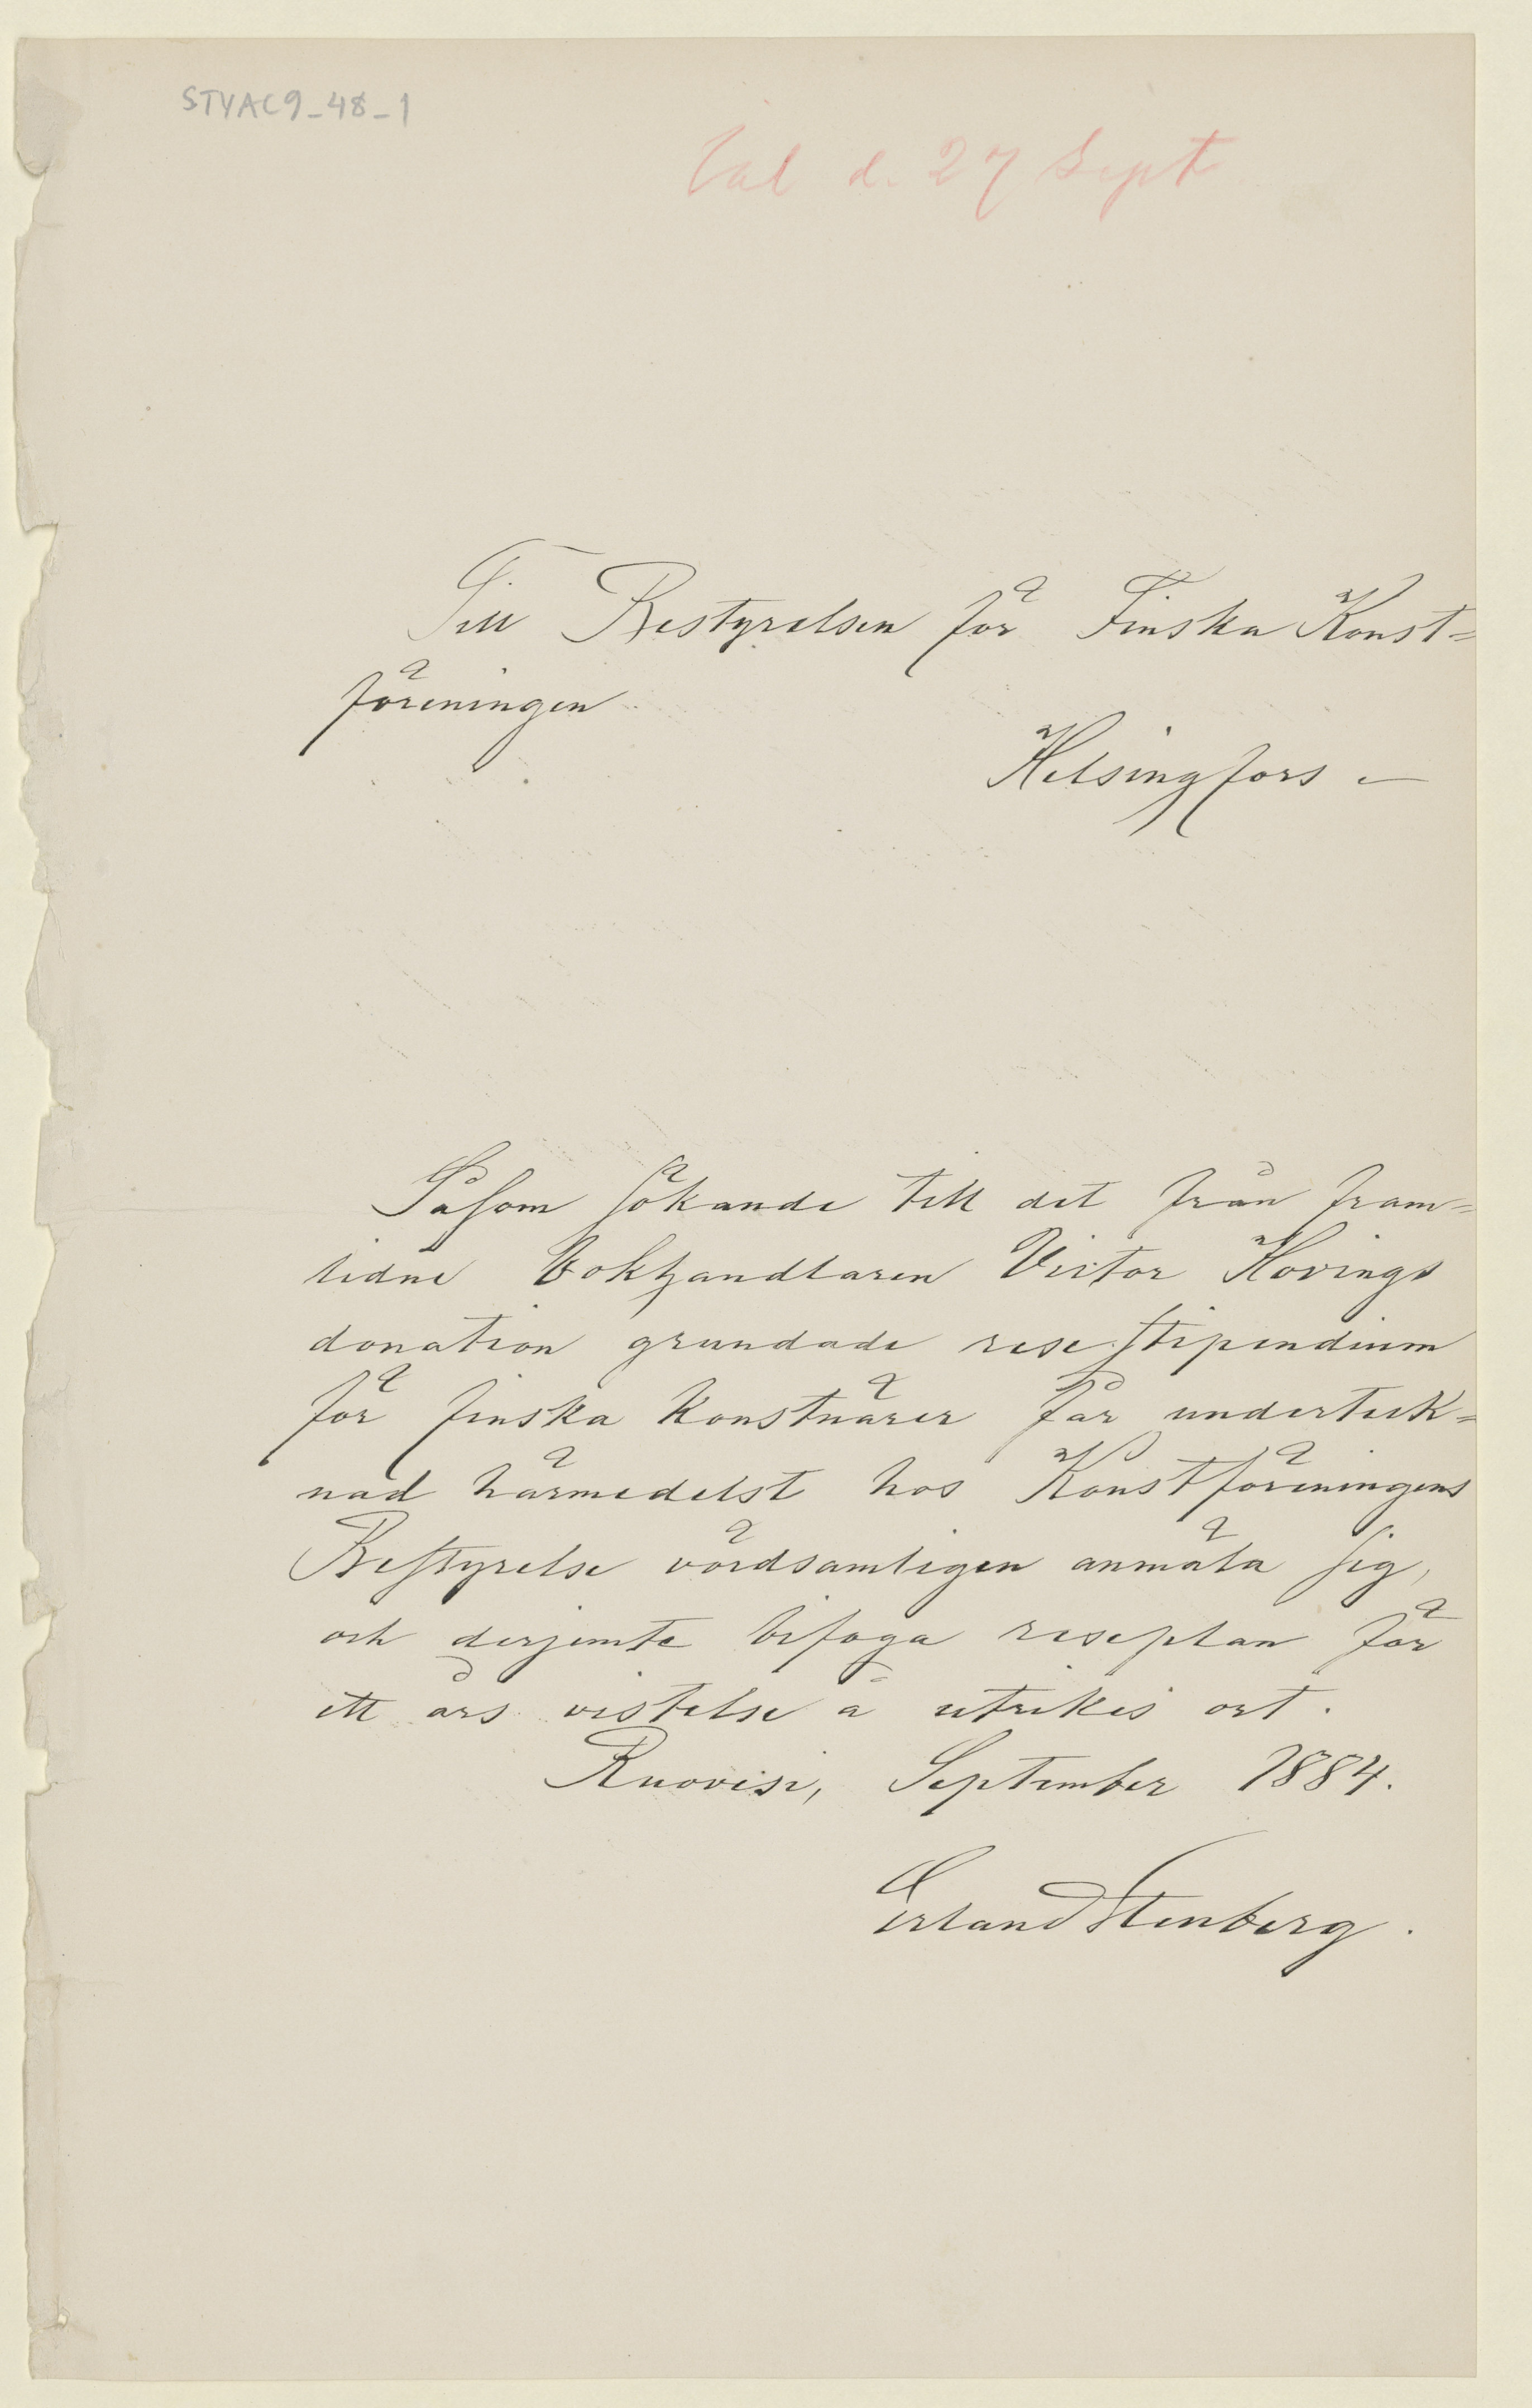 STYAC9_48_1
Val d. 27 Sept
Till Bestyrelsen för Finska Konst=
föreningen
Helsingfors.
Såsom sökande till det från fram=
lidne Bokhandlaren Victor Hovings
donation grundade resestipendium
för finska konstnärer får underteck=
nad härmedelst hos Konstföreningens
Bestyrelse vördsamligen anmäla sig,
och derjemte bifoga reseplan för
ett års vistelse å utrikes ort.
Ruovesi, September 1884.
Erland Stenberg.